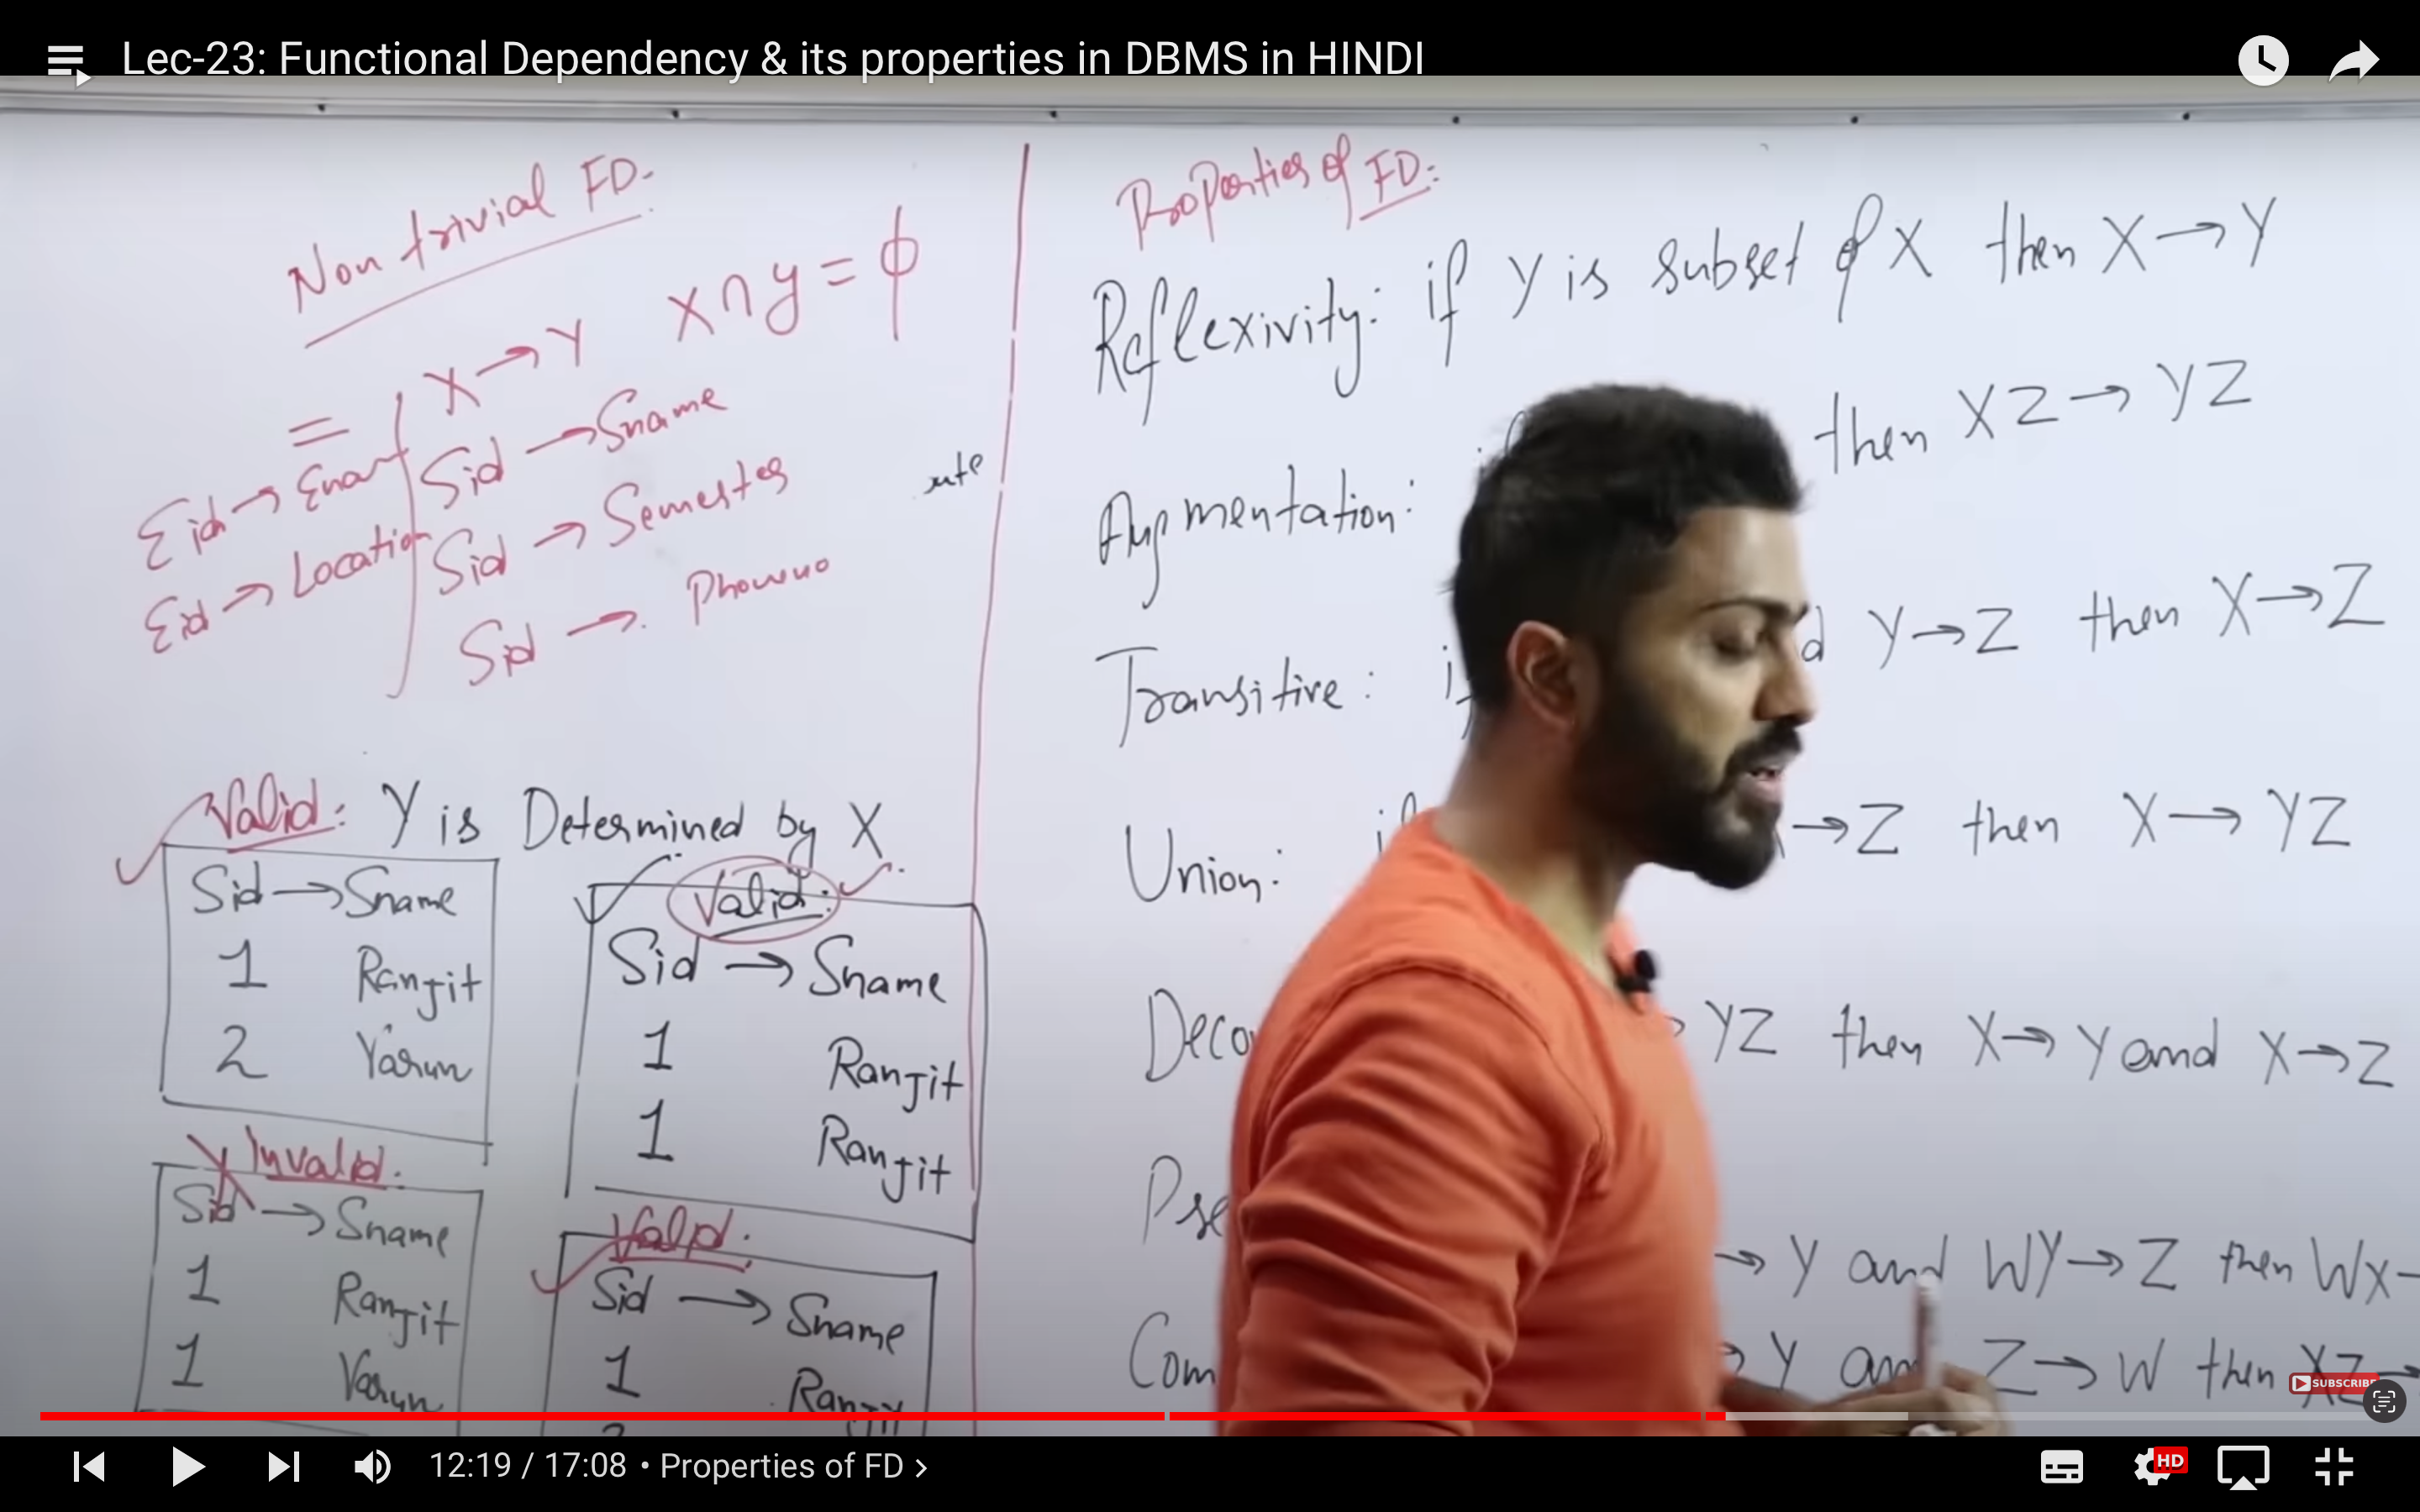 Lec-23: Functional Dependency & its properties in DBMS in HINDI
Non trivial FD.
X → Y X ∩ y = ϕ
=
Sid → Sname
Eid →
Sid → Semester
Eid → Location
Sid → Phone no
Valid: Y is Determined by X
Sid → Sname
1 Ranjit
2 Varun
Valid:
Sid → Sname
1 Ranjit
1 Ranjit
Invalid.
Sid → Sname
1 Ranjit
1 Varun
Valid.
Sid → Sname
1
Properties of FD:
Reflexivity: if Y is subset of X then X → Y
Augmentation: then XZ → YZ
Transitive: Y → Z then X → Z
Union: → Z then X → YZ
YZ then X → Y and X → Z
→ Y and WY → Z then Wx
Y and Z → W then XZ
SUBSCRIBE
12:19 / 17:08 • Properties of FD
HD